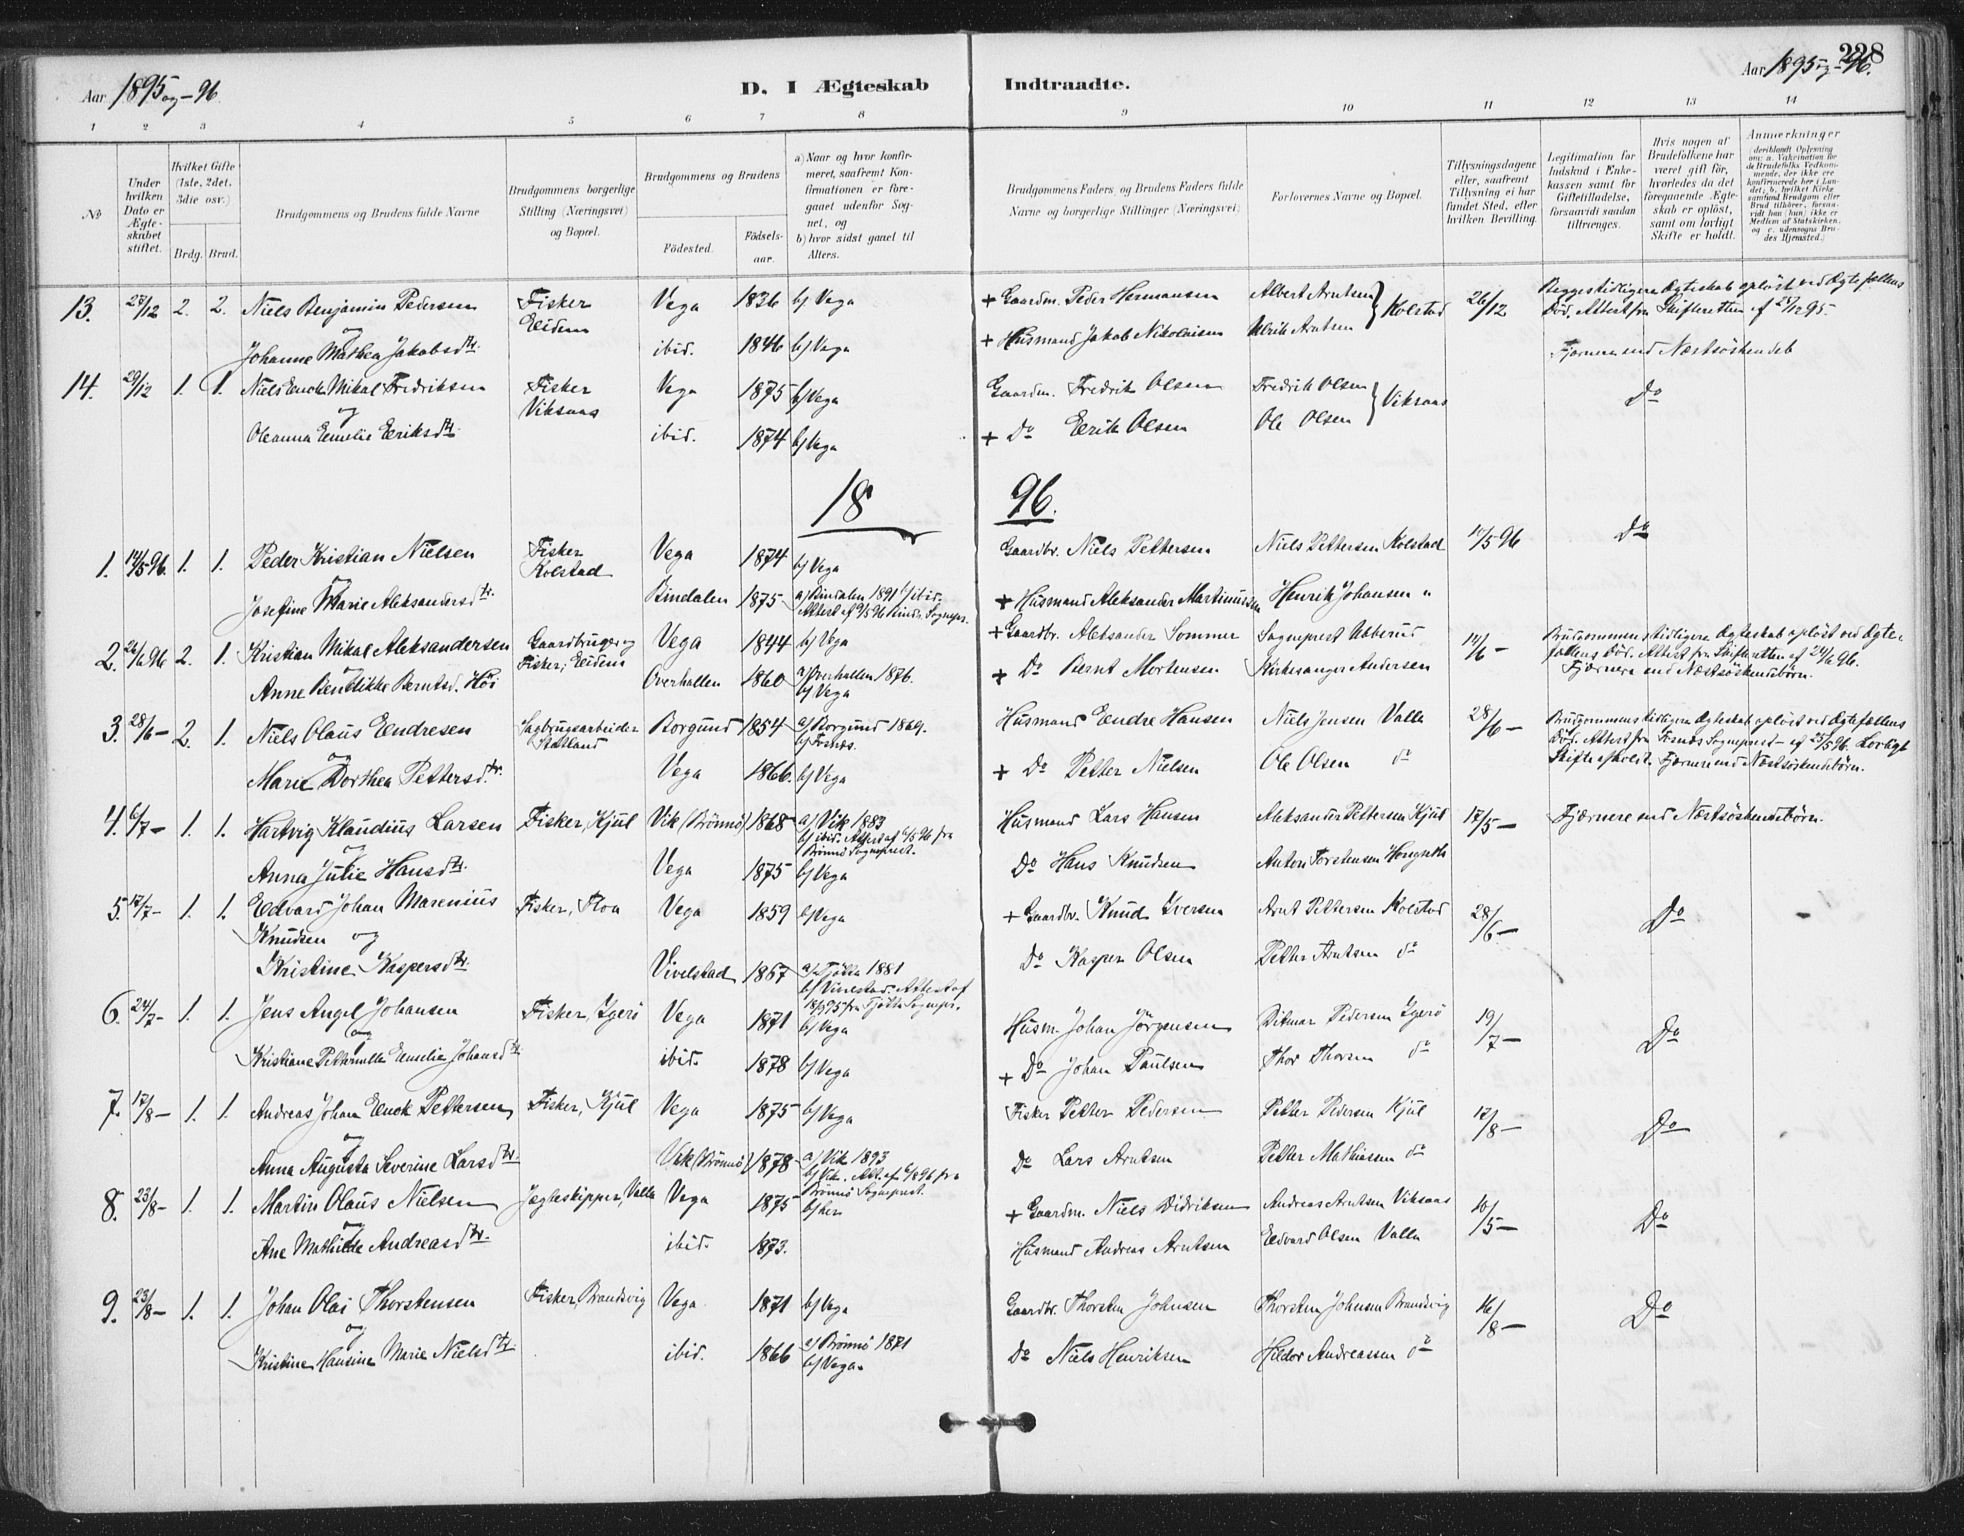 228
Aar 1895 og -96.
D. I Ægteskab Indtraadte.
Aar 1895 og -96.
1 2 3 4 5 6 7 8 9 10 11 12 13 14
No
Under hvilken Dato er Ægteskabet stiftet.
Hvilket Gifte (1ste, 2det, 3die osv.)
Brdg. Brud.
Brudgommens og Brudens fulde Navne
Brudgommens borgerlige Stilling (Næringsvei) og Bopæl.
Brudgommens og Brudens
Fødested.
Fødselsaar.
a) Naar og hvor konfirmeret, saafremt Konfirmationen er foregaaet udenfor Sognet, og
b) hvor sidst gaaet til Alters.
Brudgommens Faders, og Brudens Faders fulde Navne og borgerlige Stillinger (Næringsvei)
Forlovernes Navne og Bopæl.
Tillysningsdagene eller, saafremt Tillysning ei har fundet Sted, efter hvilken Bevilling.
Legitimation for Indskud i Enkekassen samt for Giftetilladelse, forsaavidt saadan tiltrænges.
Hvis nogen af Brudefolkene har været gift før, hvorledes da det foregaaende Ægteskab er opløst, samt om lovligt Skifte er holdt.
Anmerkninger
(deriblandt Oplysning om: a. Vakcination for de Brudefolks Vedkommende, der ikke ere konfirmerede her i Landet; b. hvilket Kirkesamfund Brudgom eller Brud tilhører, forsaavidt han (hun) ikke er Medlem af Statskirken, og c. udensogns Brudes Hjemsted.)
13. 27/12 2. 2. Niels Benjamin Pedersen Fisker Vega 1836 b/ Vega + Gaardm. Peder Hermansen Albert Arntsen } Kolstad 26/12 Begges tidligere Ægteskab opløst ved Ægtefællens
og Eidem Død. Attest fra Skifteretten
Johanne Mathea Jakobsdtr. ibid. 1846 b/ Vega + Husmand Jakob Nikolaisen Ulrik Arntsen Fjernere end Næstsöskendeb
14. 29/12 1. 1. Niels Enok Mikal Fredriksen Fisker Vega 1875 b/ Vega Gaardm. Fredrik Olsen Fredrik Olsen } Viksaas Do
og Viksaas
Oleanna Emelie Eriksdtr. ibid. 1874 b/ Vega + Do Erik Olsen Ole Olsen
18 96.
1. 14/5 96. 1. 1. Peder Kristian Nielsen Fisker Vega 1874 b/ Vega Gaardbr. Niels Pettersen Niels Pettersen Kolstad /5 96 Do
og Kolstad
Josefine Marie Aleksandersdtr. Bindalen 1875 a/ Bindalen 1891 b/ ibid. + Husmand Aleksander Martinussen Henrik Johansen "
2. 26/6 96 2. 1. Kristian Mikal Aleksandersen Gaardbruger og Vega 1844 b/ Vega + Gaardbr. Aleksander Sommer Sogneprest 14/6 - Brudgommens tidligere Ægteskab opløst ved Ægte-
Fisker, Eidem fællens Död. Attest fra Skifteretten af 24/6 96.
Anne Benedikke Berntsd. Höi Overhallen 1860 a/ Overhallen 1876. + Do Bernt Mortensen Kirkesanger Andersen Fjærnere end Næstsöskendebörn.
b/ Vega
3. 28/6 - 2. 1. Niels Olaus Endresen Sagbrugsarbeider Borgund 1854 a/ Borgund 1869. Husmand Endre Hansen Niels Jensen Valla 28/6 - Brudgommens tidligere Ægteskab opløst ved Ægtefællens
og b/ Död. Attest fra Sogneprest af 25/5 96. Lovligt
Marie Dorthea Pettersdtr. Vega 1866. b/ Vega + Do Petter Nielsen Ole Olsen do Skifte afholdt. Fjærnere end Næstsöskendebörn.
4. 6/7 - 1. 1. Hartvig Klaudius Larsen Fisker, Kjul Vik (Brönnö) 1868 a/ Vik 1883 Husmand Lars Hansen Aleksander Pettersen Kjul 17/5 - Fjærnere end Næstsöskendebörn.
og b/ ibid. Attest af 6/5 96 fra Brönnö Sogneprest.
Anna Julie Hansdtr. Vega 1875 b/ Vega Do Hans Knudsen Anton Torstensen
5. 17/7 - 1. 1. Edvard Johan Marenius Fisker, Floa Vega 1859 b/ Vega + Gaardbr. Knud Iversen Arnt Pettersen Kolstad 28/6 - Do
Knudsen og
Kristine Kaspersdtr. Vivelstad 1867 a/ Tjötta 1881 Do Kasper Olsen Petter Arntsen do
b/ Vivelstad. Attest af 18/9 95 fra Tjötta Sognepr.
6. 24/7 - 1. 1. Jens Angel Johansen Fisker, Ygerö Vega 1871 b/ Vega Husm. Johan Jörgensen Ditmar Pedersen Ygerö 19/7 - Do
og
Kristiane Petternelle Emelie Johansdtr. ibid. 1878 b/ Vega + Do Johan Paulsen Thor Thorsen do
7. 17/8 - 1. 1. Andreas Johan Enok Pettersen Fisker, Kjul Vega 1875 b/ Vega Fisker Petter Pedersen Petter Pedersen Kjul 17/8 - Do
og
Anna Augusta Severine Larsdtr. Vik (Brönnö) 1878 a/ Vik 1893 Do Lars Arntsen Petter Mathiassen do
b/ Vik. Att. af 96 fra Brönnö Sogneprest.
8. 23/8 - 1. 1. Martin Olaus Nielsen Jægteskipper, Valla Vega 1875 b/ her + Gaardm. Niels Didriksen Andreas Arntsen Viksaas 10/5 - Do
og
Ane Mathilde Andreasdtr. ibid. 1873. Husmand Andreas Arntsen Edvard Olsen Valla
9. 23/8 - 1. 1. Johan Olai Thorstensen Fisker, Brandsvig Vega 1871 b/ Vega Gaardbr. Thorsten Johnsen Thorsten Johnsen Brandsvig 16/8 - Do
og
Kristine Hansine Marie Nielsdtr. ibid. 1866 a/ Brönnö 1871 Do Niels Henriksen Hildor Andreassen do
b/ Vega